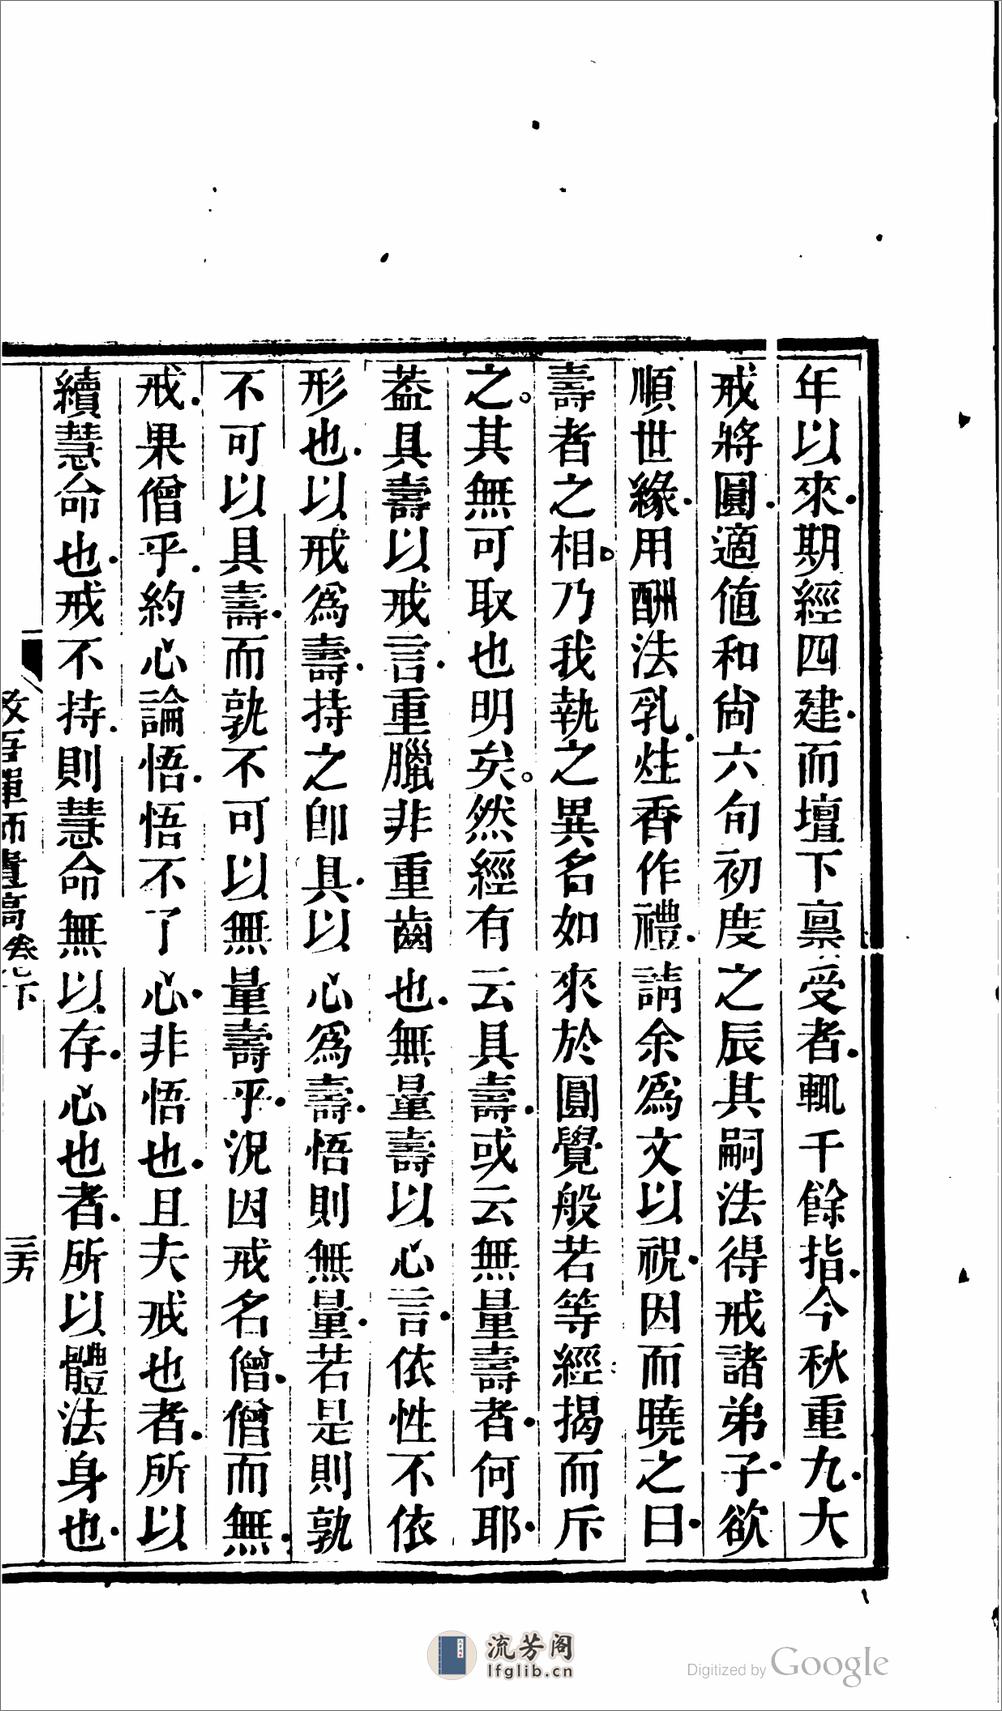 年以來期經四建而壇下禀受者輒千餘指今秋重九大
戒將圓適値和尙六旬初度之辰其嗣法得戒諸弟子欲
順世緣用酬法乳炷香作禮請余爲文以祝因而曉之曰
壽者之相乃我執之異名如來於圓覺般若等經揭而斥
之其無可取也明矣然經有云具壽或云無量壽者何耶
葢具壽以戒言重臘非重齒也無量壽以心言依性不依
形也以戒爲壽持之卽具以心爲壽悟則無量若是則孰
不可以具壽而孰不可以無量壽乎況因戒名僧僧而無
戒果僧乎約心論悟悟不了心非悟也且夫戒也者所以
續慧命也戒不持則慧命無以存心也者所以體法身也
吾禪師遺稿卷
流芳阁
lfglib.cn
Digitized by Google